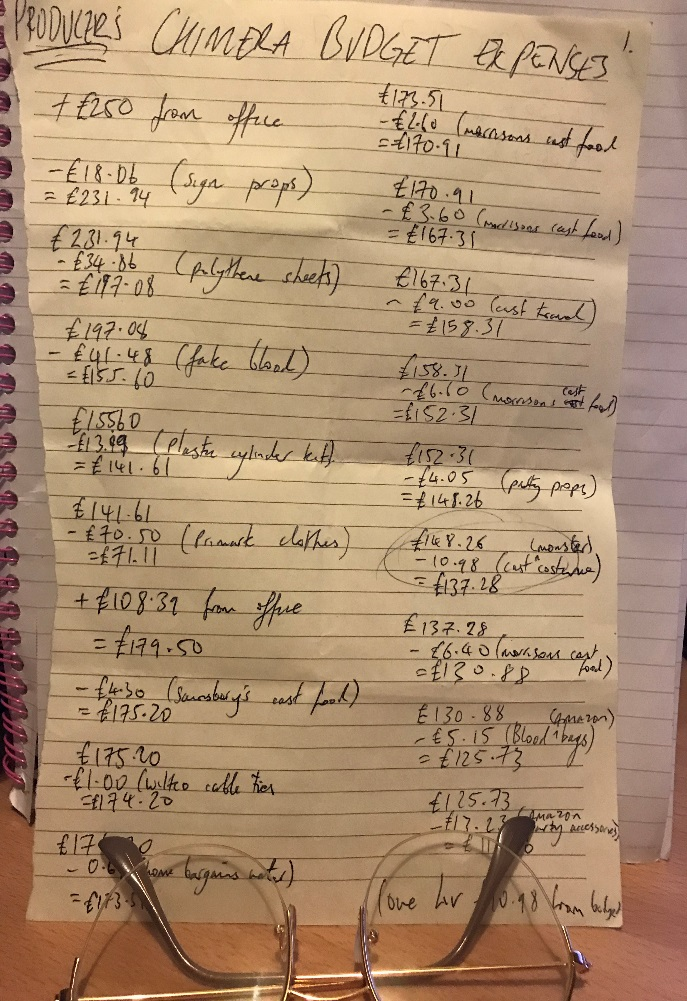 PRODUCER'S CHIMERA BUDGET EXPENSES
1.
+ £250 from office
- £18.06 (sign props)
= £231.94
£231.94
- £34.86 (polythene sheets)
= £197.08
£197.08
- £41.48 (fake blood)
= £155.60
£15560
- £13.99 (plastic cylinder
= £141.61
£141.61
- £70.50 (Primark clothes)
= £71.11
+ £108.39 from office
= £179.50
- £4.30 (Sainsbury's cast food)
= £175.20
£175.20
- £1.00 (wilko cable ties
= £174.20
- 0.6
bargains water)
= £173.5
£173.51
- £2.60 (morrisons cast food
= £170.91
£170.91
- £3.60 (morrisons cast food)
= £167.31
£167.31
- £9.00 (cast travel)
= £158.31
£158.31
- £6.60 (morrisons cast food)
= £152.31
£152.31
- £4.05 (party props)
= £148.26
£148.26 (monster)
- 10.98 (cast ^ costume)
= £137.28
£137.28
- £6.40 (morrisons cast
food)
= £130.88
£130.88 (Amazon)
- £5.15 (Blood ^ bags)
= £125.73
£125.73
(Amazon
party accessories)
(owe
0.98 from budget